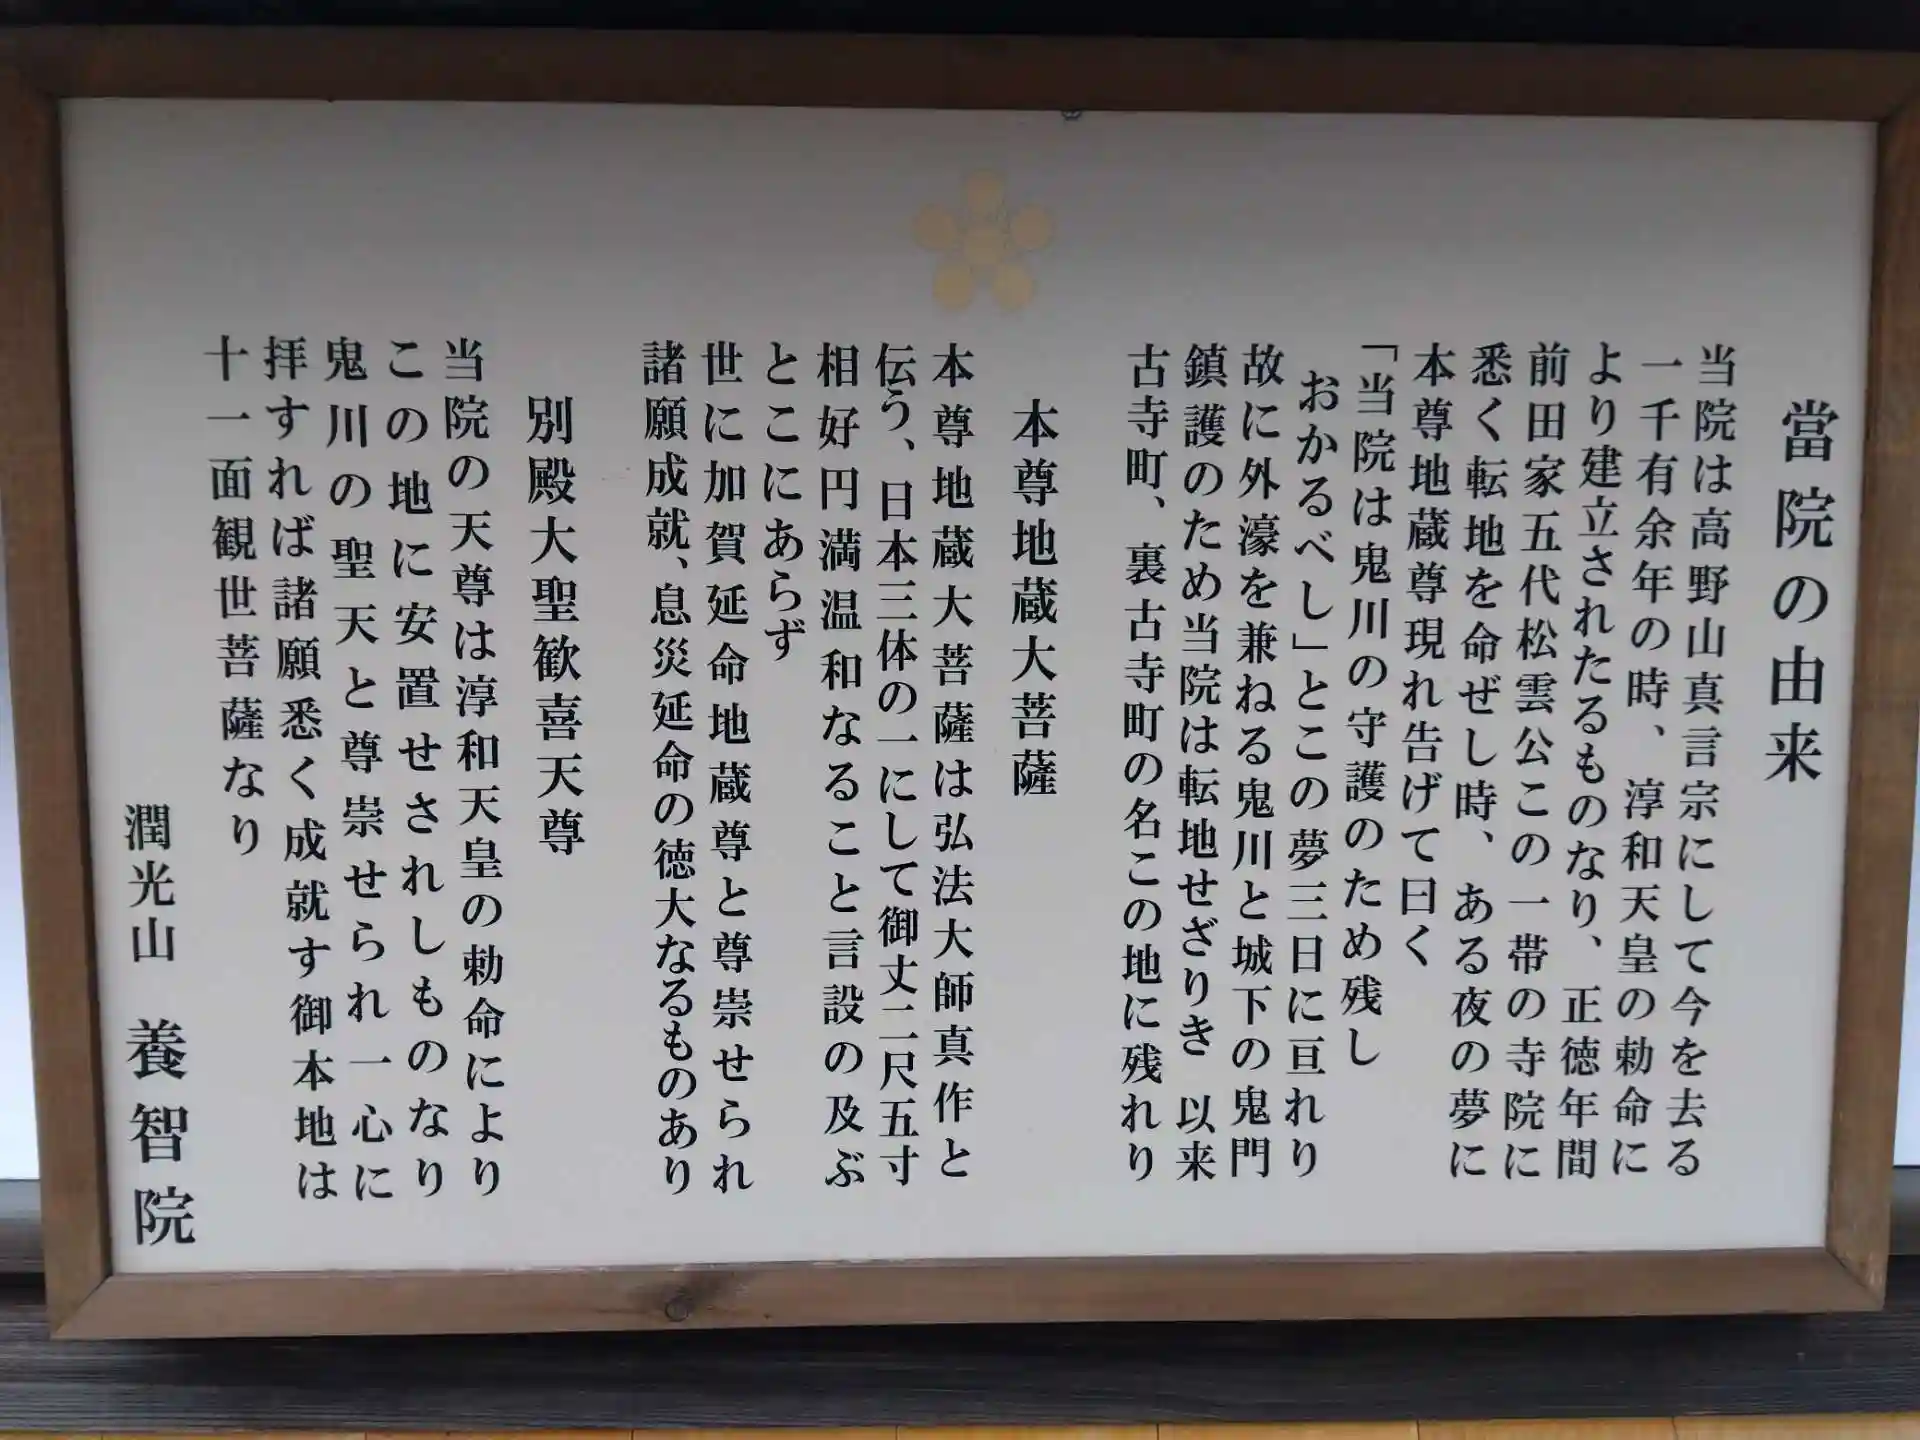 當院の由来
当院は高野山真言宗にして今を去る
一千有余年の時、淳和天皇の勅命に
より建立されたるものなり、正徳年間
前田家五代松雲公この一帯の寺院に
悉く転地を命ぜし時、ある夜の夢に
本尊地蔵尊現れ告げて曰く
「当院は鬼川の守護のため残し
おかるべし」とこの夢三日に亘れり
故に外濠を兼ねる鬼川と城下の鬼門
鎮護のため当院は転地せざりき 以来
古寺町、裏古寺町の名この地に残れり
本尊地蔵大菩薩
本尊地蔵大菩薩は弘法大師真作と
伝う、日本三体の一にして御丈二尺五寸
相好円満温和なること言設の及ぶ
とこにあらず
世に加賀延命地蔵尊と尊崇せられ
諸願成就、息災延命の徳大なるものあり
別殿大聖歓喜天尊
当院の天尊は淳和天皇の勅命により
この地に安置せされしものなり
鬼川の聖天と尊崇せられ一心に
拝すれば諸願悉く成就す御本地は
十一面観世菩薩なり
潤光山 養智院